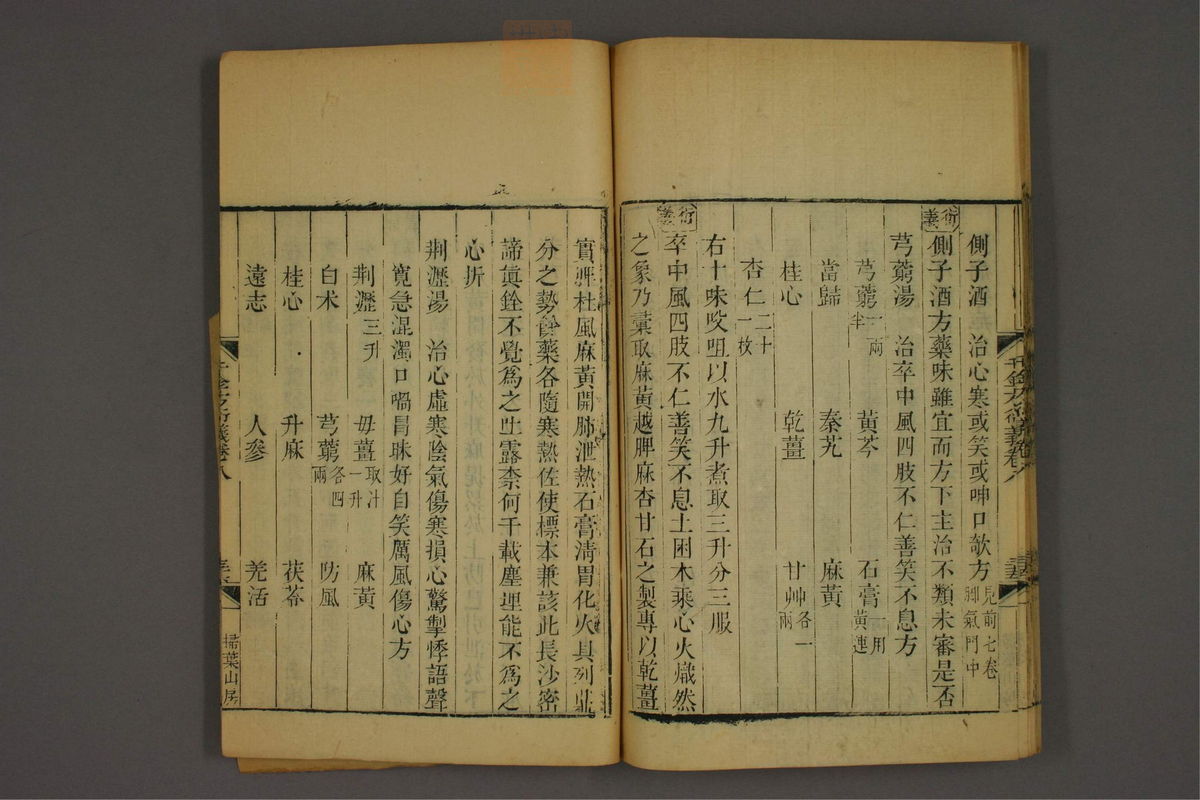 側子酒 治心寒或笑或呻口欹方見前七卷脚氣門中
衍義 側子酒方藥味雖宜而方下主治不類未審是否
芎藭湯 治卒中風四肢不仁善笑不息方
芎藭一兩半 黃芩 石膏一用黃連
當歸 秦艽 麻黃
桂心 乾薑 甘艸各一兩
杏仁二十一枚
右十味㕮咀以水九升煮取三升分三服
衍義 卒中風四肢不仁善笑不息土困木乘心火熾然
之象乃彙取麻黃越脾麻杏甘石之製專以乾薑
實脾杜風麻黃開肺泄熱石膏清胃化火具列鼎
分之勢餘藥各隨寒熱佐使標本兼該此長沙密
諦眞銓不覺爲之吐露柰何千載塵埋能不爲之
心折
荆瀝湯 治心虛寒陰氣傷寒損心驚掣悸語聲
寬急混濁口喎冒昧好自笑厲風傷心方
荆瀝三升 毋薑取汁一升 麻黃
白朮 芎藭各四兩 防風
桂心 升麻 茯苓
遠志 人參 羌活
千金方衍義卷八
掃葉山房